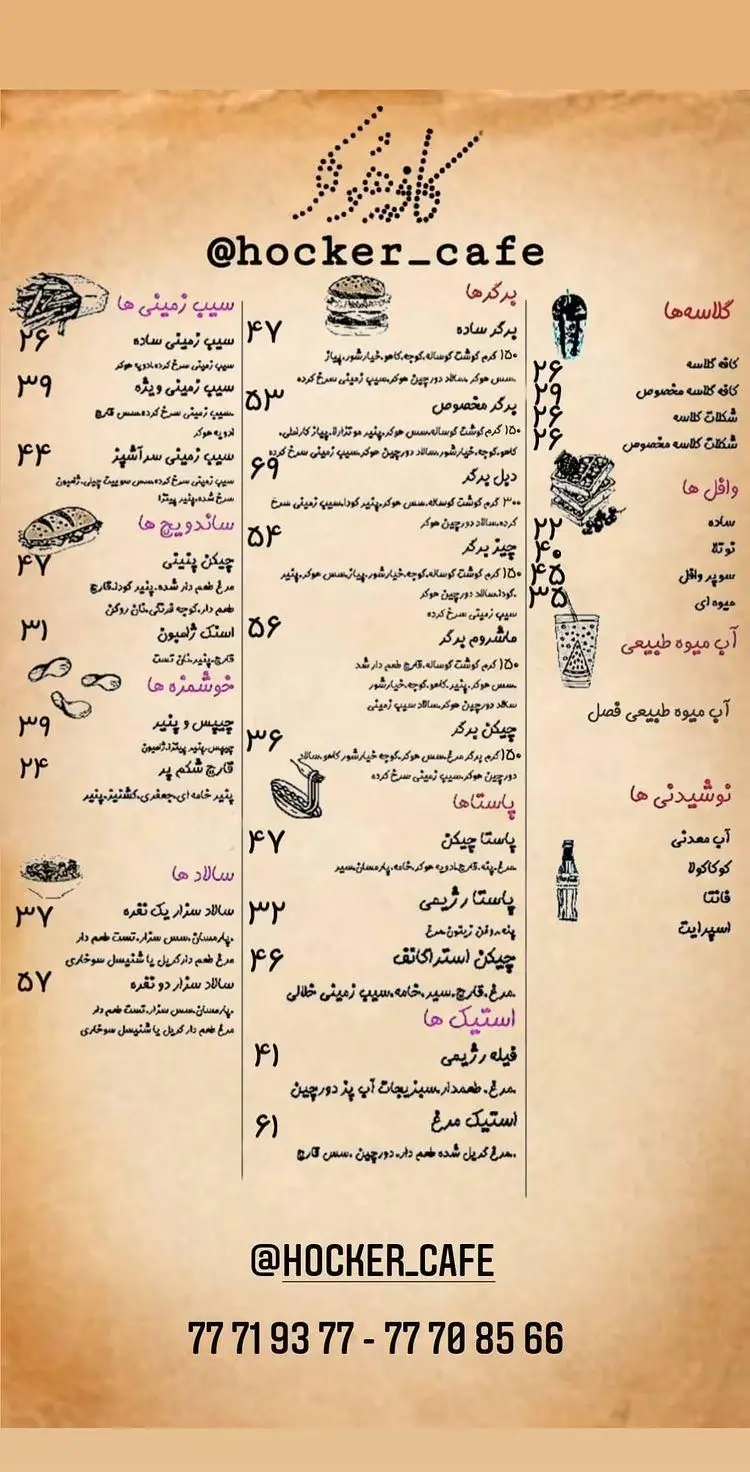 کافه هوکر
@hocker_cafe
گلاسه‌ها
کافه گلاسه ۲۶
کافه گلاسه مخصوص ۲۹
شکلات گلاسه ۲۶
شکلات گلاسه مخصوص ۲۶
وافل ها
ساده ۲۲
نوتلا ۴۰
سوپر وافل ۴۵
میوه ای ۳۵
آب میوه طبیعی
آب میوه طبیعی فصل
نوشیدنی ها
آب معدنی
کوکاکولا
فانتا
اسپرایت
برگرها
برگر ساده ۴۷
۱۵۰ گرم گوشت گوساله.گوجه.کاهو.خیارشور.پیاز
.سس هوکر.سالاد دورچین هوکر.سیب زمینی سرخ کرده
برگر مخصوص ۵۳
۱۵۰ گرم گوشت گوساله.سس هوکر.پنیر موتزارلا.پیاز کاراملی.
کاهو.گوجه.خیارشور.سالاد دورچین هوکر.سیب زمینی سرخ کرده
دبل برگر ۶۹
۳۰۰ گرم گوشت گوساله.سس هوکر.پنیر گودا.سیب زمینی سرخ
کرده.سالاد دورچین هوکر
چیز برگر ۵۴
۱۵۰ گرم گوشت گوساله.گوجه.خیارشور.پیاز.سس هوکر.پنیر
.گودا.سالاد دورچین هوکر
سیب زمینی سرخ کرده
ماشروم برگر ۵۶
۱۵۰ گرم گوشت گوساله.قارچ طعم دار شد
.سس هوکر.پنیر.کاهو.گوجه.خیارشور
سالاد دورچین هوکر.سالاد سیب زمینی
چیکن برگر ۳۶
۱۵۰ گرم برگر مرغ.سس هوکر.گوجه خیارشور کاهو.سالاد
دورچین هوکر.سیب زمینی سرخ کرده
پاستاها
پاستا چیکن ۴۷
.مرغ.پنه.قارچ.ادویه هوکر.خامه.پارمسان.سیر
پاستا رژیمی ۳۲
پنه.روغن زیتون.مرغ
چیکن استراگانف ۴۶
.مرغ.قارچ.سیر.خامه.سیب زمینی خلالی
استیک ها
فیله رژیمی ۴۱
.مرغ.طعمدار.سبزیجات آب پز دورچین
استیک مرغ ۶۱
..مرغ گریل شده طعم دار.دورچین .سس قارچ
سیب زمینی ها
سیب زمینی ساده ۲۶
سیب زمینی سرخ کرده.ادویه هوکر
سیب زمینی ویژه ۳۹
.سیب زمینی سرخ کرده.سس قارچ
ادویه هوکر
سیب زمینی سرآشپز ۴۴
سیب زمینی سرخ کرده.سس سوییت چیلی.ژامبون
سرخ شده.پنیر پیتزا
ساندویچ ها
چیکن پنینی ۴۷
مرغ طعم دار شده.پنیر گودا.قارچ
طعم دار.گوجه فرنگی.نان روگن
اسنک ژامبون ۳۱
قارچ.پنیر.نان تست
خوشمزه ها
چیپس و پنیر ۳۹
چیپس.پنیر پیتزا.ژامبون
قارچ شکم پر ۲۴
پنیر خامه ای.جعفری.گشنیز.پنیر
سالاد ها
سالاد سزار یک نفره ۳۷
.پارمسان.سس سزار.تست طعم دار
مرغ طعم دار گریل یا شنیسل سوخاری
سالاد سزار دو نفره ۵۷
.پارمسان.سس سزار.تست طعم دار
مرغ طعم دار گریل یا شنیسل سوخاری
@HOCKER_CAFE
77 71 93 77 - 77 70 85 66